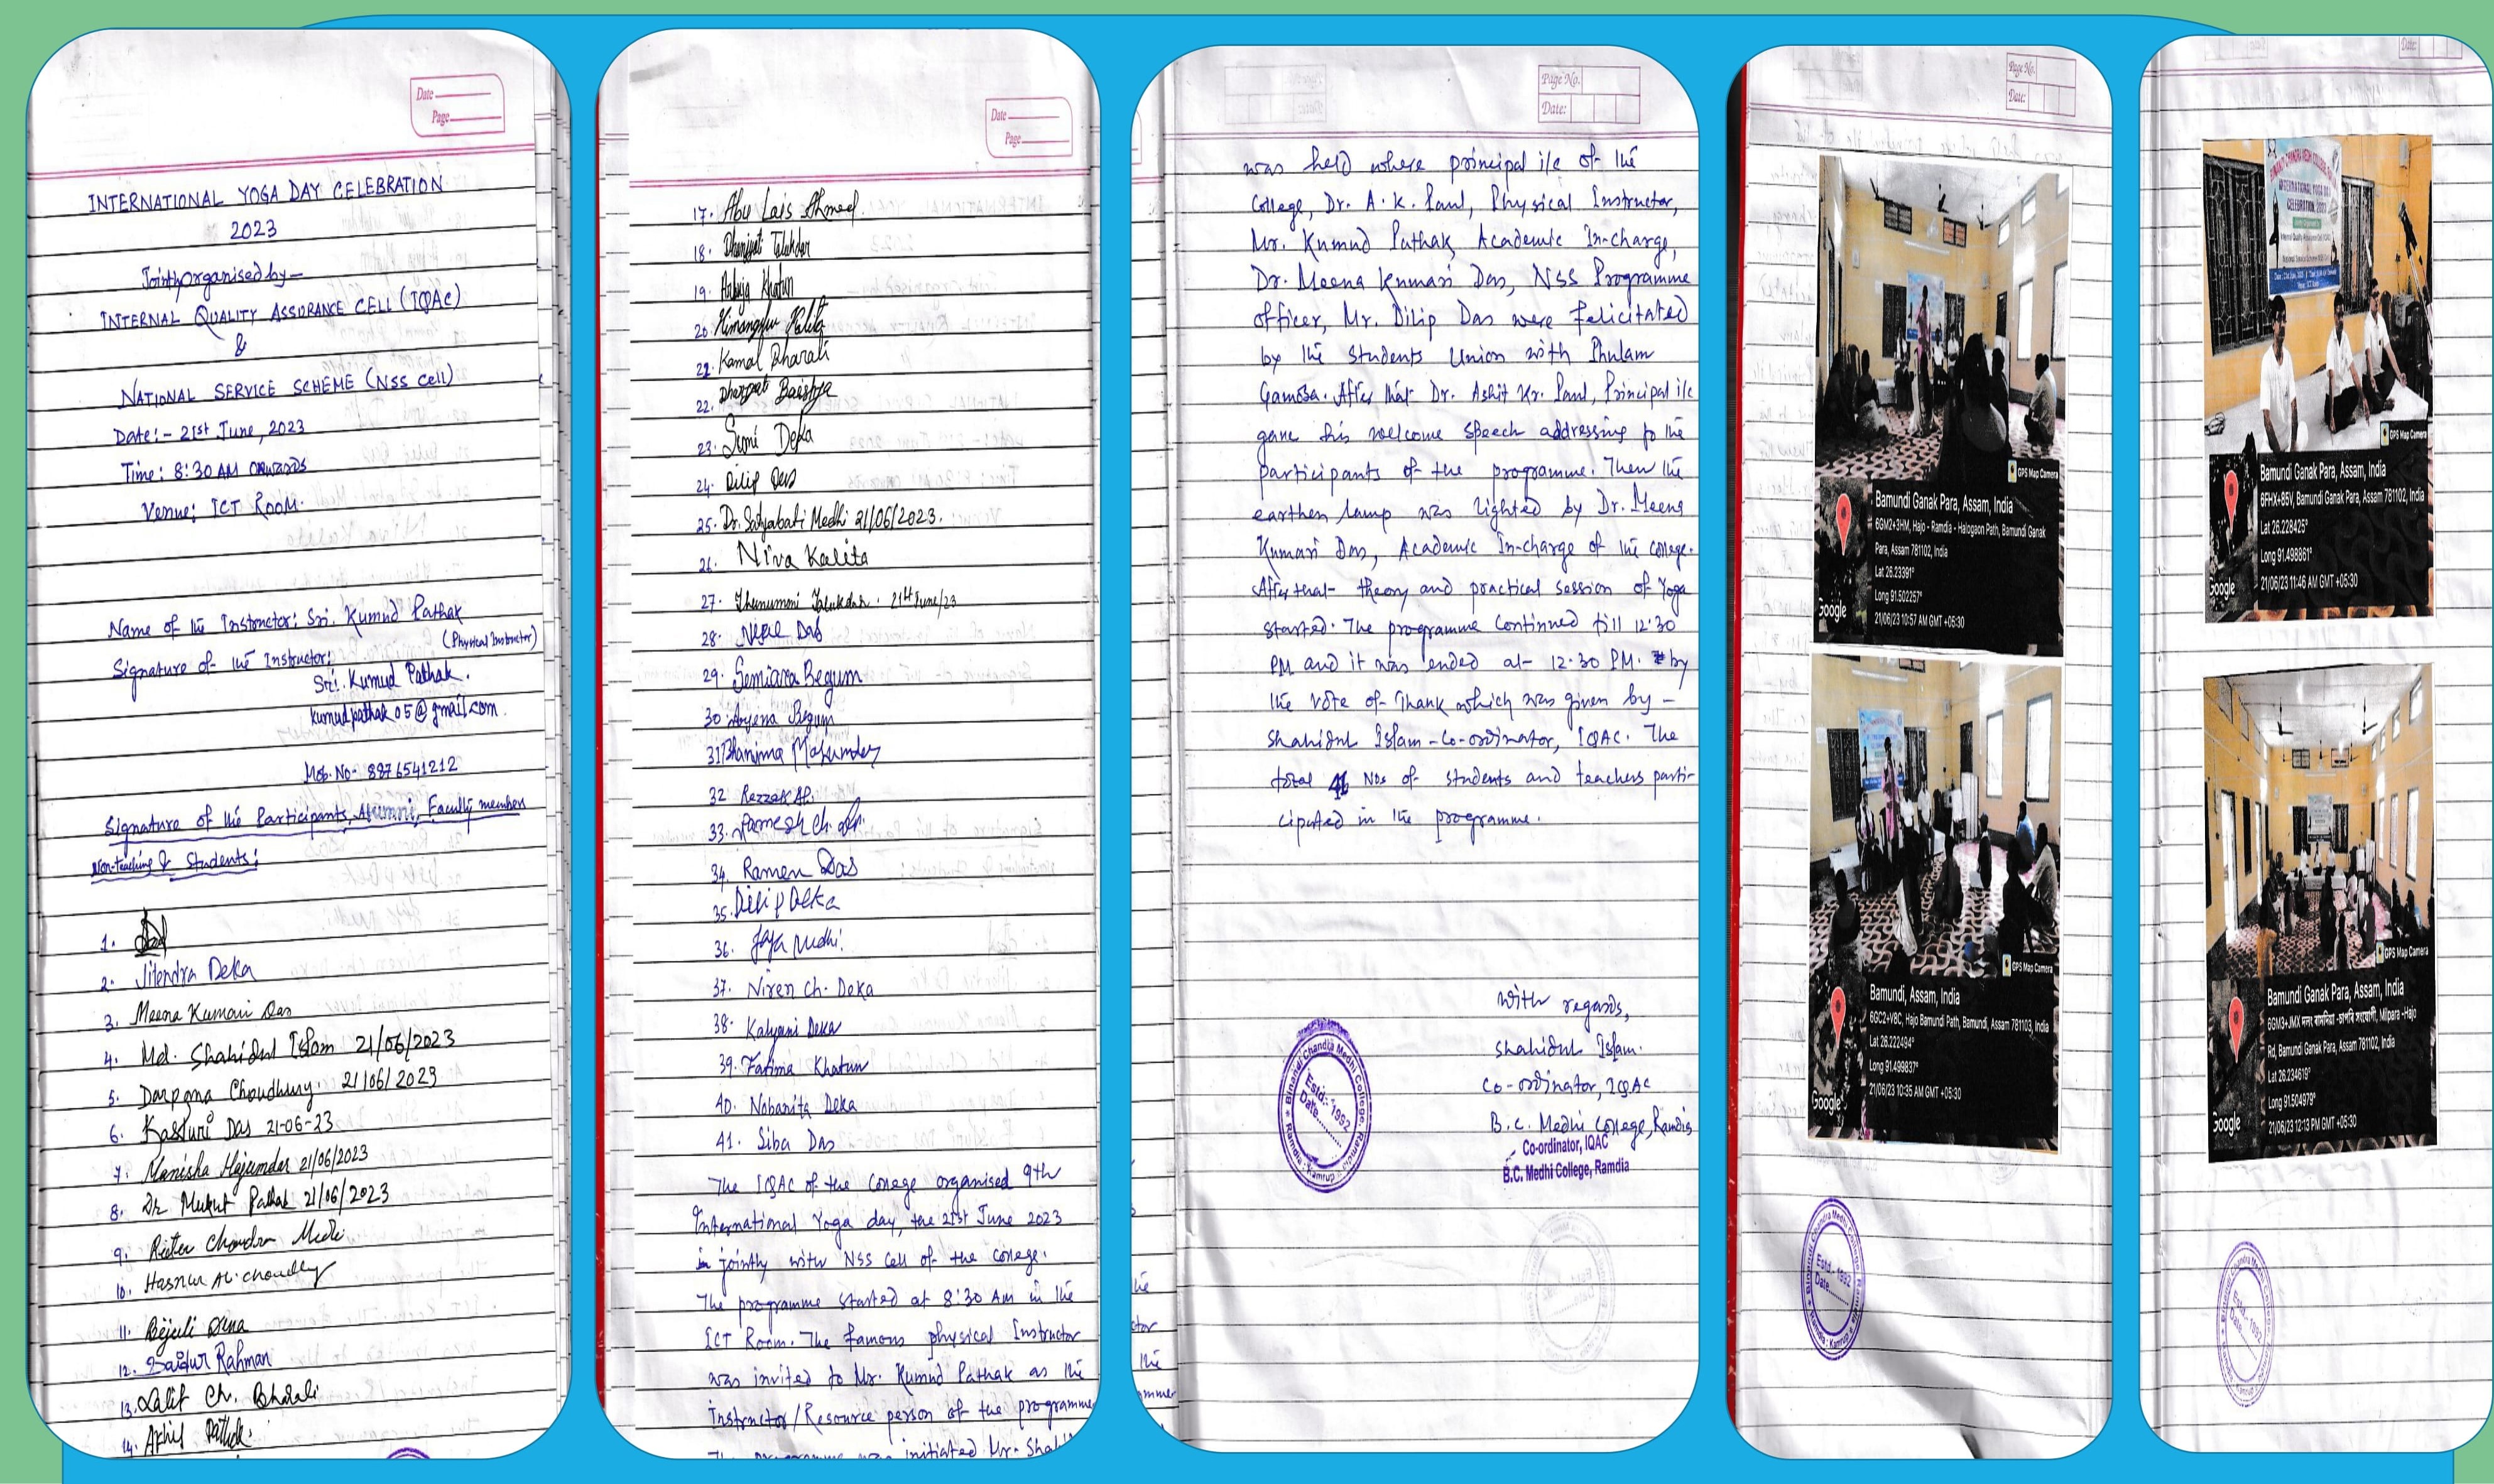 Date
Page
INTERNATIONAL YOGA DAY CELEBRATION
2023
Jointly organised by—
INTERNAL QUALITY ASSURANCE CELL (IQAC)
&
NATIONAL SERVICE SCHEME (NSS Cell)
Date:- 21st June, 2023
Time: 8:30 AM onwards
Venue: ICT ROOM.
Name of the Instructor: Sri. Kumud Pathak
(Physical Instructor)
Signature of the Instructor:
Sri. Kumud Pathak.
kumudpathak05@gmail.com.
Mob. No- 8876541212
Signature of the Participants, Alumni, Faculty members
Non-teaching & Students:
1.
2. Jitendra Deka
3. Meena Kumari Das
4. Md. Shahidul Islam 21/06/2023
5. Darpana Choudhury. 21/06/2023
6. Kasturi Das 21-06-23
7. Manisha Majumdar 21/06/2023
8. Dr Mukut Pathak 21/06/2023
9. Chandra
10. Hasnur Ali choudhry
11.
12. Saidur Rahman
13. Lalit Ch. Bharali
14. Akhil Pathak.
Date
Page
17. Abu Lais Ahmed.
18. Talukdar
19. Khatun
20. Himangshu Kalita
21. Kamal Bharali
22. Baishya
23. Deka
24. Dilip Das
25. Dr. Satyabati Medhi 21/06/2023.
26. Niva Kalita
27. Talukdar. 21st June/23
28. Das
29. Semiara Begum
30. Begum
31.
32. Rezzak Ali.
33. Ramesh Ch.
34. Ramen Das
35. Dilip Deka
36. Jaya Medhi.
37. Niren Ch. Deka
38. Kalyani Deka
39. Fatima Khatun
40. Nabanita Deka
41. Siba Das
The IQAC of the College organised 9th
International Yoga day, the 21st June 2023
in jointly with NSS Cell of the College.
The programme started at 8:30 AM in the
ICT Room. The famous physical Instructor
was invited to Mr. Kumud Pathak as the
Instructor/Resource person of the programme
The programme was initiated Mr.
Page No.
Date:
was held where principal i/c of the
College, Dr. A. K. Paul, Physical Instructor,
Mr. Kumud Pathak, Academic In-charge,
Dr. Meena Kumari Das, NSS Programme
officer, Mr. Dilip Das were felicitated
by the Students Union with Phulam
Gamosa. After that Dr. Ashit Kr. Paul, Principal i/c
gave his welcome speech addressing to the
participants of the programme. Then the
earthen lamp was lighted by Dr. Meena
Kumari Das, Academic In-charge of the College.
After that- theory and practical session of Yoga
started. The programme continued till 12.30
PM and it was ended at- 12.30 PM. by
the vote of Thank which was given by -
Shahidul Islam-Co-ordinator, IQAC. The
total 41 Nos of students and teachers parti-
cipated in the programme.
With regards,
Shahidul Islam.
Co-ordinator, IQAC
B.C. Medhi College, Ramdia
Co-ordinator, IQAC
B.C. Medhi College, Ramdia
Binandi Chandra Medhi College
Ramdia Kamrup
Estd:- 1992
Date
Page No.
Date:
GPS Map Camera
Bamundi Ganak Para, Assam, India
6GM2+3HM, Hajo - Ramdia - Halogaon Path, Bamundi Ganak
Para, Assam 781102, India
Lat 26.23391°
Long 91.502257°
21/06/23 10:57 AM GMT +05:30
Google
GPS Map Camera
Bamundi, Assam, India
6GC2+V8C, Hajo Bamundi Path, Bamundi, Assam 781103, India
Lat 26.222494°
Long 91.499837°
21/06/23 10:35 AM GMT +05:30
Google
Estd:- 1992
Date
INTERNATIONAL YOGA DAY
CELEBRATION, 2023
Internal Quality Assurance Cell (IQAC)
GPS Map Camera
Bamundi Ganak Para, Assam, India
6FHX+85V, Bamundi Ganak Para, Assam 781102, India
Lat 26.228425°
Long 91.498861°
21/06/23 11:46 AM GMT +05:30
Google
GPS Map Camera
Bamundi Ganak Para, Assam, India
6GM3+JMX Milpara -Hajo
Rd, Bamundi Ganak Para, Assam 781102, India
Lat 26.234619°
Long 91.504979°
21/06/23 12:13 PM GMT +05:30
Google
Estd:- 1992
Date